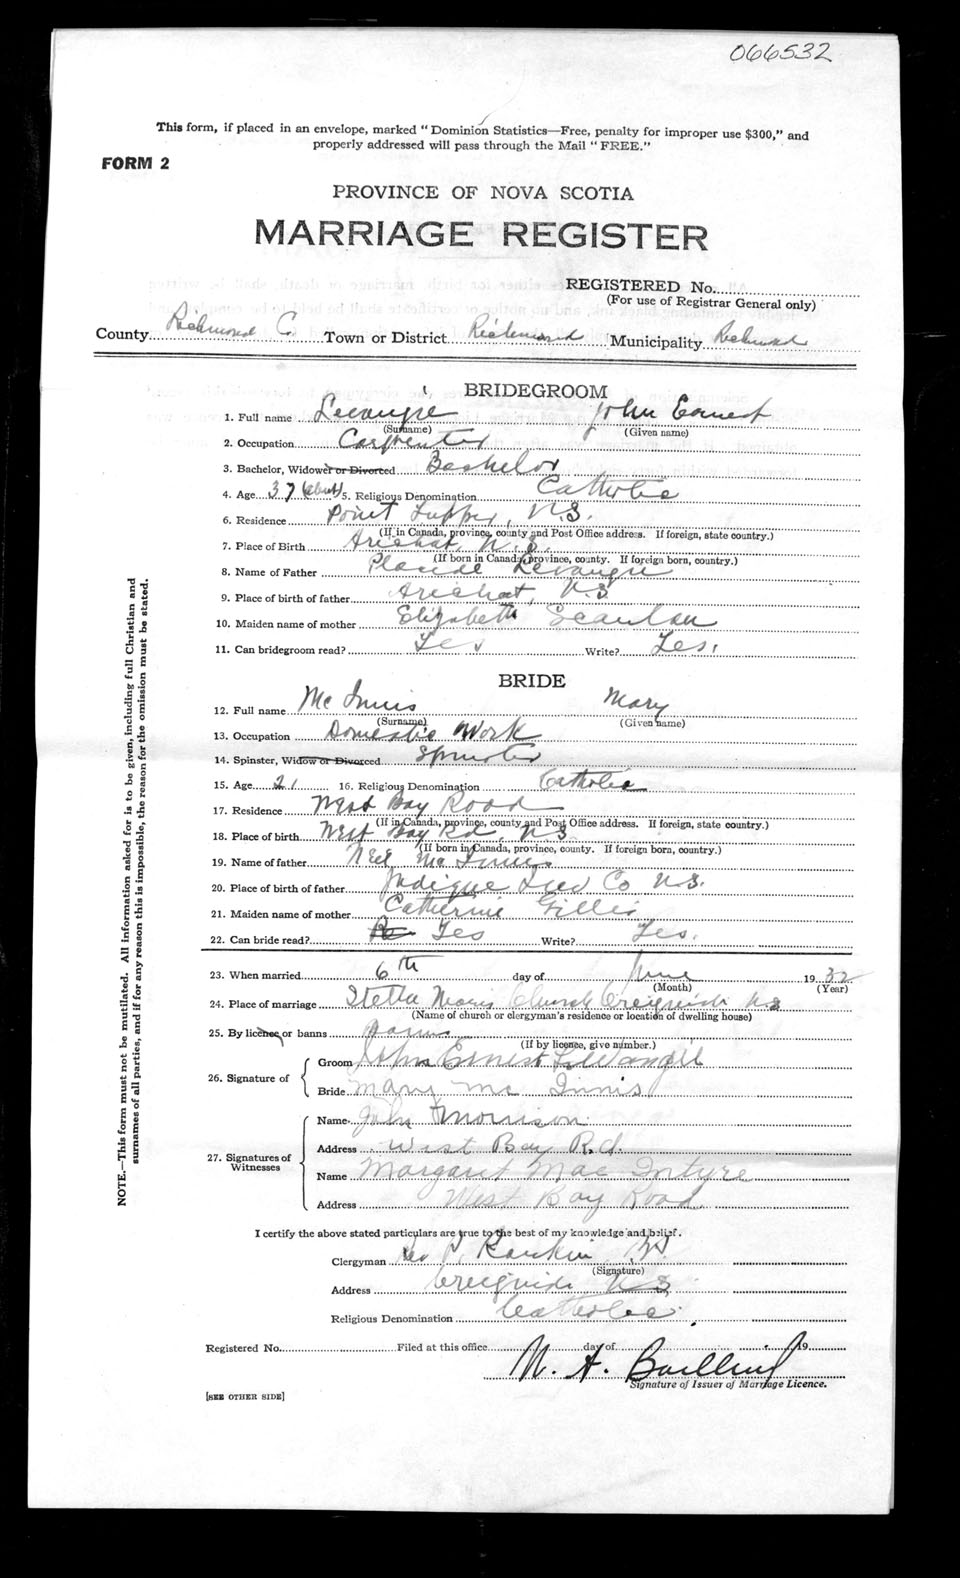 066532
This form, if placed in an envelope, marked "Dominion Statistics—Free, penalty for improper use $300," and
properly addressed will pass through the Mail "FREE."
FORM 2
PROVINCE OF NOVA SCOTIA
MARRIAGE REGISTER
REGISTERED No.
(For use of Registrar General only)
County Richmond C. Town or District Richmond Municipality Richmond
BRIDEGROOM
1. Full name Levangie John Ernest
(Surname) (Given name)
2. Occupation Carpenter
3. Bachelor, Widower or Divorced Bachelor
4. Age 37 (about) 5. Religious Denomination Catholic
6. Residence Point Tupper, N.S.
(If in Canada, province, county and Post Office address. If foreign, state country.)
7. Place of Birth Arichat, N.S.
(If born in Canada, province, county. If foreign born, country.)
8. Name of Father Placide Levangie
9. Place of birth of father Arichat, N.S.
10. Maiden name of mother Elizabeth Scanlan
11. Can bridegroom read? Yes Write? Yes.
BRIDE
12. Full name Mc Innis Mary
(Surname) (Given name)
13. Occupation Domestic Work
14. Spinster, Widow or Divorced Spinster
15. Age 21 16. Religious Denomination Catholic
17. Residence West Bay Road
(If in Canada, province, county and Post Office address. If foreign, state country.)
18. Place of birth West Bay Rd N S
(If born in Canada, province, county. If foreign born, country.)
19. Name of father Neil Mc Innis
20. Place of birth of father Judique Co N.S.
21. Maiden name of mother Catherine Gillis
22. Can bride read? Yes Write? Yes.
23. When married 6th day of June 1932
(Month) (Year)
24. Place of marriage Stella Maris Church Creignish N.S
(Name of church or clergyman's residence or location of dwelling house)
25. By licence or banns Banns
(If by licence, give number.)
26. Signature of
Groom John Ernest LeVangie
Bride Mary Mc Innis
27. Signatures of Witnesses
Name John Morrison
Address West Bay Rd.
Name Margaret Mac Intyre
Address West Bay Road
I certify the above stated particulars are true to the best of my knowledge and belief.
Clergyman Rev Rankin
(Signature)
Address Creignish N S
Religious Denomination Catholic
Registered No. Filed at this office day of 19
N. A.
Signature of Issuer of Marriage Licence.
[SEE OTHER SIDE]
NOTE.—This form must not be mutilated. All information asked for is to be given, including full Christian and
surnames of all parties, and if for any reason this is impossible, the reason for the omission must be stated.